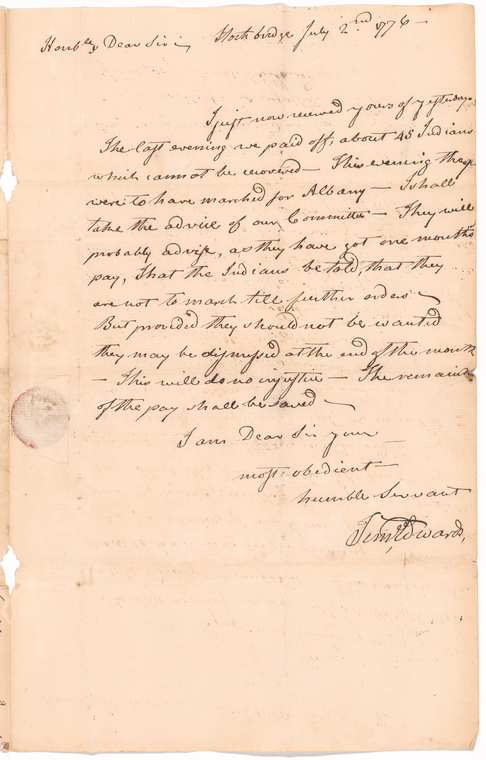 Honble & Dear Sir Stockbridge July 2nd 1776 —
I just now received yours of yesterday
The last evening we paid off, about 45 Indians
which cannot be recovered — This evening they
were to have marched for Albany — I shall
take the advice of our Committee — They will
probably advise, as they have got one months
pay, that the Indians be told, that they
are not to march till further orders —
But provided they should not be wanted
they may be dismissed at the end of the month
— This will do no injustice — The remaind
of the pay shall be saved —
I am Dear Sir your —
most obedient —
humble Servant
Timy Edwards,